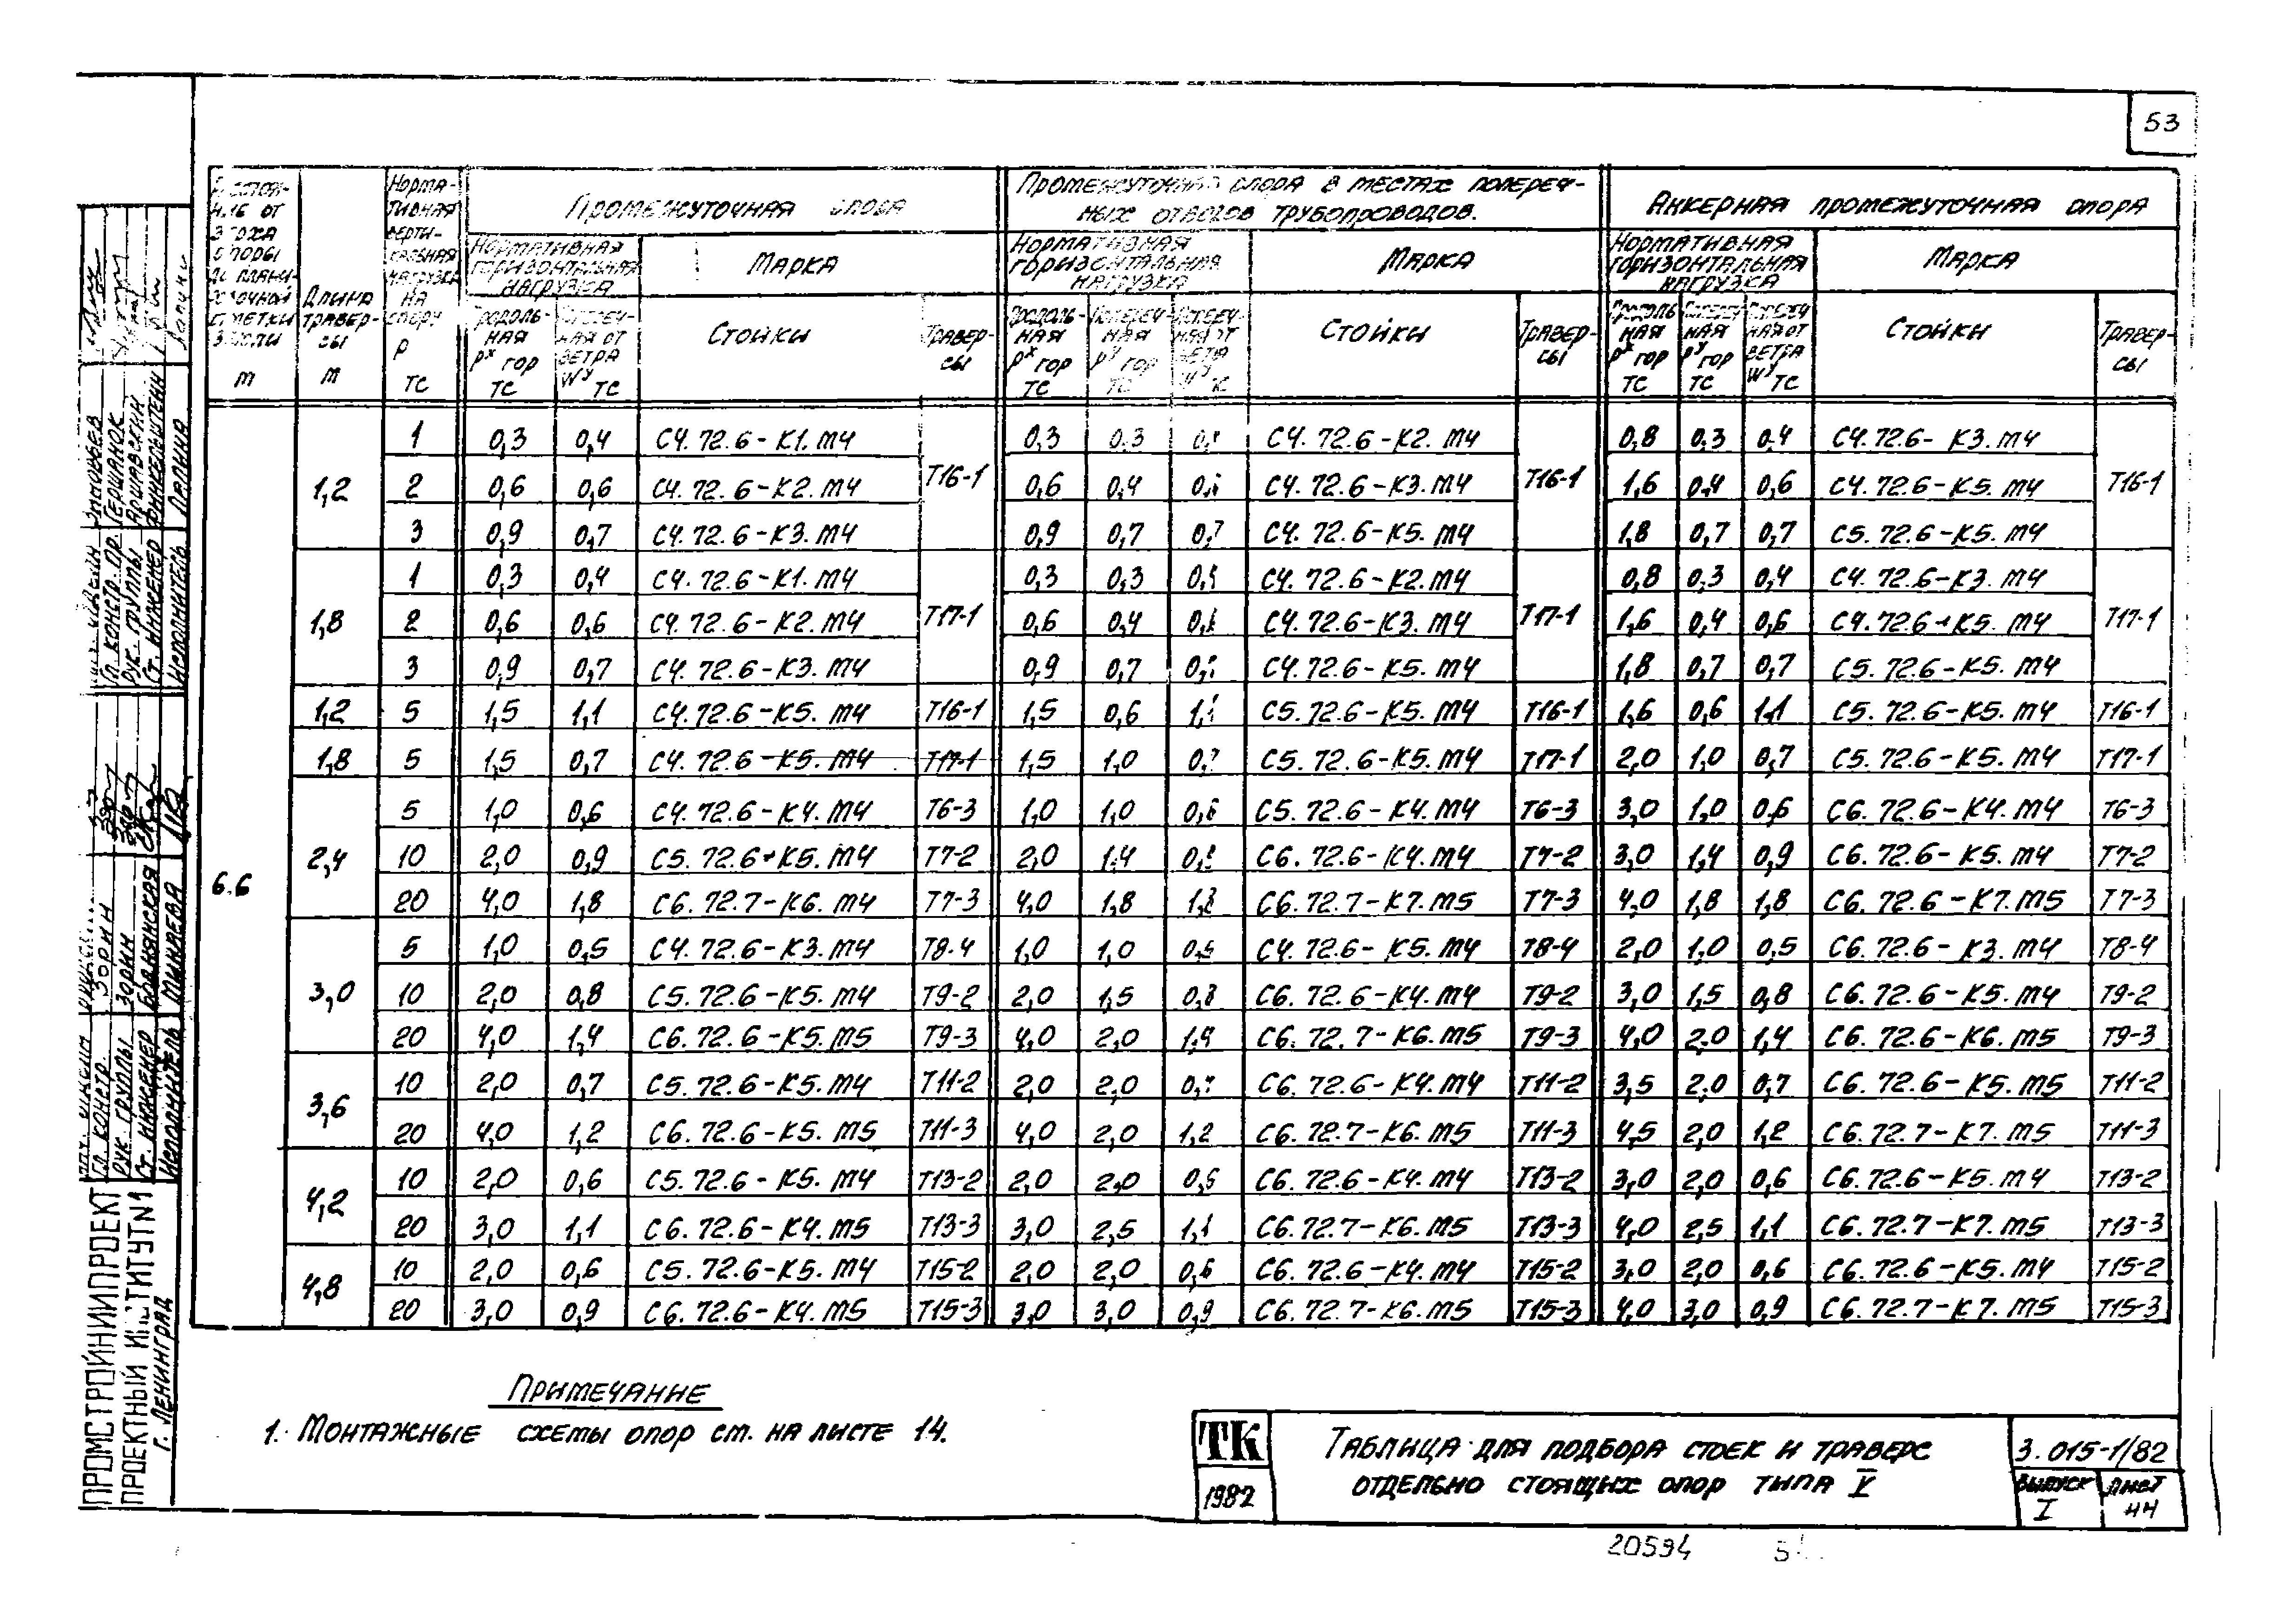 53
Длина траверсы м
Нормативная вертикальная нагрузка на опору P тс
Промежуточная опора
Промежуточная опора в местах поперечных отводов трубопроводов.
Анкерная промежуточная опора
Нормативная горизонтальная нагрузка
Марка
Нормативная горизонтальная нагрузка
Марка
Нормативная горизонтальная нагрузка
Марка
Продольная Pˣ гор тс
Поперечная от ветра Wʸ тс
Стойки
Траверсы
Продольная Pˣ гор тс
Поперечная Pʸ гор тс
Поперечная от ветра
Стойки
Траверсы
Продольная Pˣ гор тс
Поперечная Pʸ гор тс
Поперечная от ветра Wʸ тс
Стойки
Траверсы
6.6
1,2
1 0,3 0,4 С4.72.6-К1.М4 0,3 0,3 С4.72.6-К2.М4 0,8 0,3 0,4 С4.72.6-К3.М4
2 0,6 0,6 С4.72.6-К2.М4 Т16-1 0,6 0,4 С4.72.6-К3.М4 Т16-1 1,6 0,4 0,6 С4.72.6-К5.М4 Т16-1
3 0,9 0,7 С4.72.6-К3.М4 0,9 0,7 0,7 С4.72.6-К5.М4 1,8 0,7 0,7 С5.72.6-К5.М4
1,8
1 0,3 0,4 С4.72.6-К1.М4 0,3 0,3 0,4 С4.72.6-К2.М4 0,8 0,3 0,4 С4.72.6-К3.М4
2 0,6 0,6 С4.72.6-К2.М4 Т17-1 0,6 0,4 С4.72.6-К3.М4 Т17-1 1,6 0,4 0,6 С4.72.6-К5.М4 Т17-1
3 0,9 0,7 С4.72.6-К3.М4 0,9 0,7 С4.72.6-К5.М4 1,8 0,7 0,7 С5.72.6-К5.М4
1,2 5 1,5 1,1 С4.72.6-К5.М4 Т16-1 1,5 0,6 1,1 С5.72.6-К5.М4 Т16-1 1,6 0,6 1,1 С5.72.6-К5.М4 Т16-1
1,8 5 1,5 0,7 С4.72.6-К5.М4 Т17-1 1,5 1,0 0,7 С5.72.6-К5.М4 Т17-1 2,0 1,0 0,7 С5.72.6-К5.М4 Т17-1
2,4
5 1,0 0,6 С4.72.6-К4.М4 Т6-3 1,0 1,0 0,6 С5.72.6-К4.М4 Т6-3 3,0 1,0 0,6 С6.72.6-К4.М4 Т6-3
10 2,0 0,9 С5.72.6-К5.М4 Т7-2 2,0 1,4 С6.72.6-К4.М4 Т7-2 3,0 1,4 0,9 С6.72.6-К5.М4 Т7-2
20 4,0 1,8 С6.72.7-К6.М4 Т7-3 4,0 1,8 1,8 С6.72.7-К7.М5 Т7-3 4,0 1,8 1,8 С6.72.6-К7.М5 Т7-3
3,0
5 1,0 0,5 С4.72.6-К3.М4 Т8-4 1,0 1,0 0,5 С4.72.6-К5.М4 Т8-4 2,0 1,0 0,5 С6.72.6-К3.М4 Т8-4
10 2,0 0,8 С5.72.6-К5.М4 Т9-2 2,0 1,5 0,8 С6.72.6-К4.М4 Т9-2 3,0 1,5 0,8 С6.72.6-К5.М4 Т9-2
20 4,0 1,4 С6.72.6-К5.М5 Т9-3 4,0 2,0 1,4 С6.72.7-К6.М5 Т9-3 4,0 2,0 1,4 С6.72.6-К6.М5 Т9-3
3,6
10 2,0 0,7 С5.72.6-К5.М4 Т11-2 2,0 2,0 0,7 С6.72.6-К4.М4 Т11-2 3,5 2,0 0,7 С6.72.6-К5.М5 Т11-2
20 4,0 1,2 С6.72.6-К5.М5 Т11-3 4,0 2,0 1,2 С6.72.7-К6.М5 Т11-3 4,5 2,0 1,2 С6.72.7-К7.М5 Т11-3
4,2
10 2,0 0,6 С5.72.6-К5.М4 Т13-2 2,0 2,0 0,6 С6.72.6-К4.М4 Т13-2 3,0 2,0 0,6 С6.72.6-К5.М4 Т13-2
20 3,0 1,1 С6.72.6-К4.М5 Т13-3 3,0 2,5 1,1 С6.72.7-К6.М5 Т13-3 4,0 2,5 1,1 С6.72.7-К7.М5 Т13-3
4,8
10 2,0 0,6 С5.72.6-К5.М4 Т15-2 2,0 2,0 0,6 С6.72.6-К4.М4 Т15-2 3,0 2,0 0,6 С6.72.6-К5.М4 Т15-2
20 3,0 0,9 С6.72.6-К4.М5 Т15-3 3,0 3,0 0,9 С6.72.7-К6.М5 Т15-3 4,0 3,0 0,9 С6.72.7-К7.М5 Т15-3
Примечание
1. Монтажные схемы опор см. на листе 14.
ТК
1982
Таблица для подбора стоек и траверс
отдельно стоящих опор типа V
3.015-1/82
Выпуск I
Лист 44
20594
Гл. констр. пр. Гершанок
Рук. группы Аршавский
Ст. инженер Финкельштейн
Исполнитель Лапина
Гл. констр. Зорин
Рук. группы Зорин
Ст. инженер
Исполнитель Минаева
ПРОМСТРОЙНИИПРОЕКТ
ПРОЕКТНЫЙ ИНСТИТУТ N1
г. Ленинград